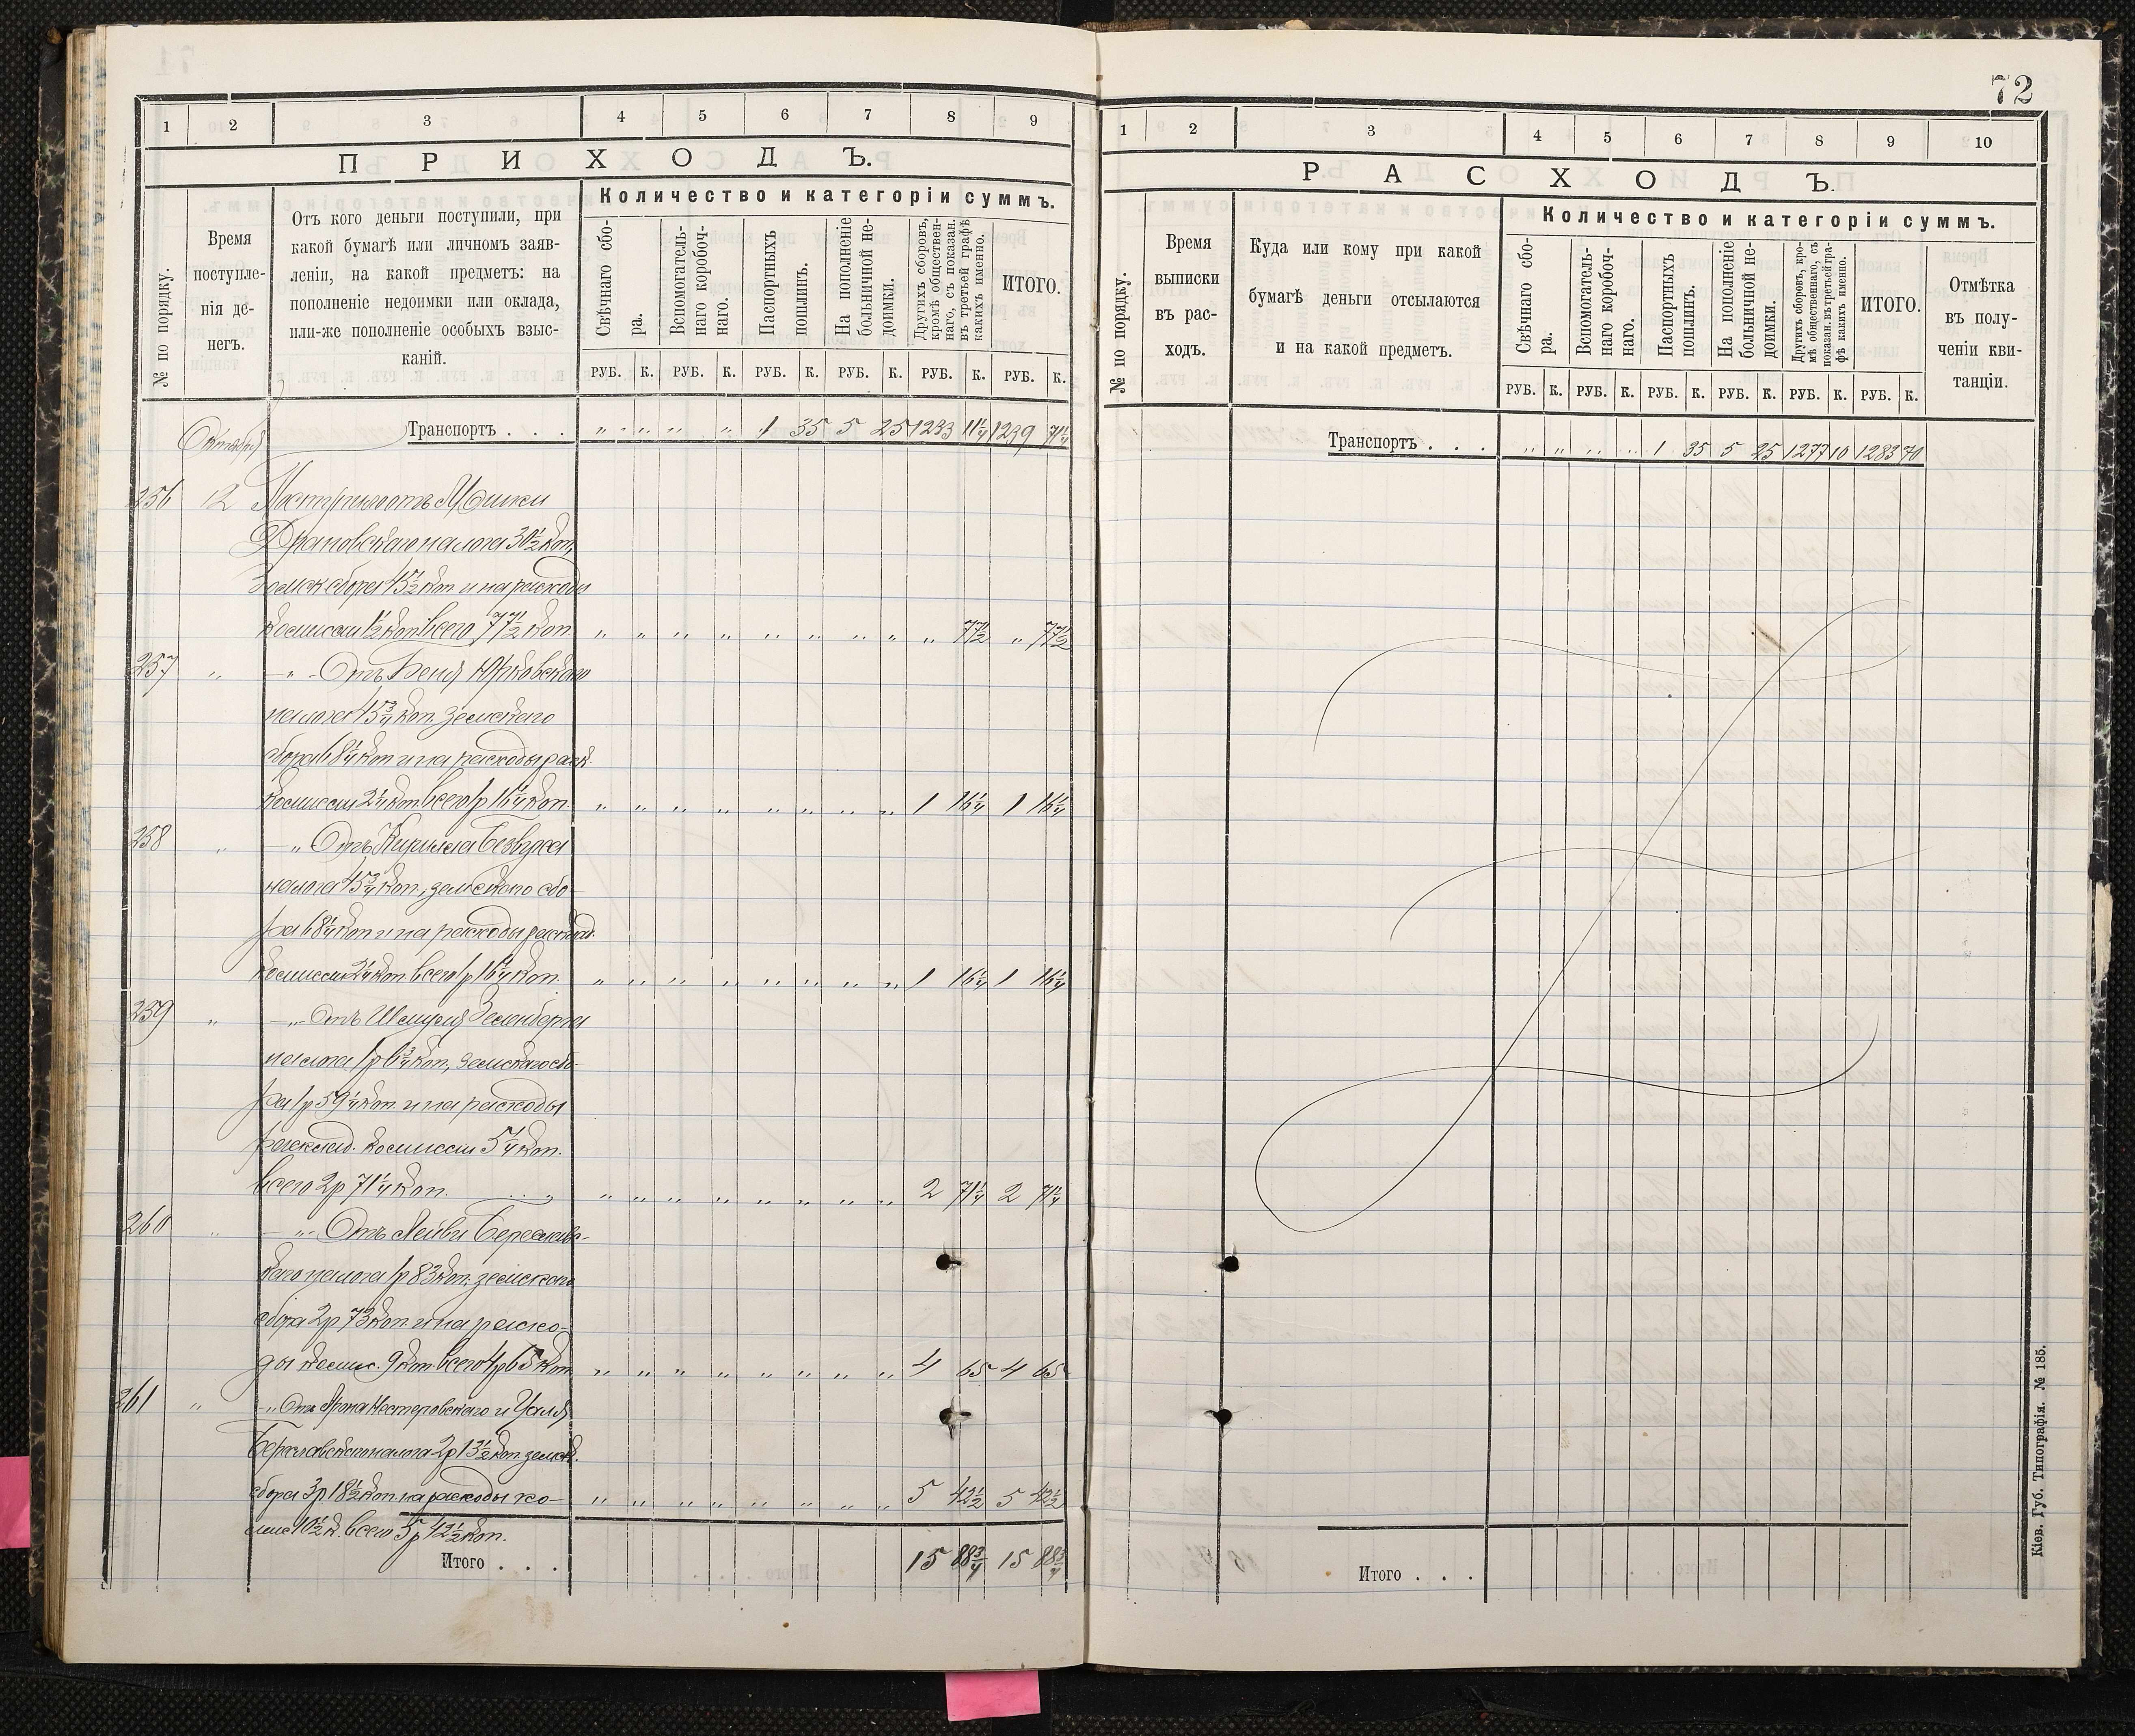 72
1 2 3 4 5 6 7 8 9
ПРИХОДЪ.
№ по порядку.
Время
поступле-
нія де-
негъ.
Отъ кого деньги поступили, при
какой бумагѣ или личномъ заяв-
леніи, на какой предметъ: на
пополненіе недоимки или оклада,
или-же пополненіе особыхъ взыс-
каній.
Количество и категоріи суммъ.
Свѣчнаго сбо-
ра.
Вспомогатель-
наго коробоч-
наго.
Паспортныхъ
пошлинъ.
На пополненіе
больничной не-
доимки.
Другихъ сборовъ,
кромѣ обществен-
наго, съ показан.
въ третьей графѣ
какихъ именно.
ИТОГО.
РУБ. К. РУБ. К. РУБ. К. РУБ. К. РУБ. К. РУБ. К.
Октября
Транспортъ . . . " " " " 1 35 5 25 1233 11¼ 1239 71¼
256 12 отъ
налога 30½ коп,
Земск сбора 45½ коп и на расходы
комиссіи 1½ коп всего 77½ коп. " " " " " " " " " 77½ " 77½
257 " — " — Отъ Бенца Юрковскаго
налога 45¾ коп. земскаго
сбора 68¼ коп и на расходы раск.
комиссіи 2¼ коп всего 1р 16¼ коп. " " " " " " " " 1 16¼ 1 16¼
258 " — " Отъ
налога 45¾ коп, земскаго сбо-
ра 68¼ коп и на расходы расклад.
комиссіи 2¼ коп всего 1р 16¼ коп. " " " " " " " " 1 16¼ 1 16¼
259 " — " — Отъ Шмуля Зеленберга
налога 1р 6¾ коп, земскаго сбо-
ра 1р 59¼ коп и на расходы
расклад. комиссіи 5¼ коп.
всего 2р 71¼ коп. " " " " " " " " 2 71¼ 2 71¼
260 " — " — Отъ Лейви
каго налога 1р 83 коп. земскаго
сбора 2р 73 коп и на расхо-
ды комис. 9 коп. всего 4р 65 коп " " " " " " " " 4 65 4 65
261 " — " Отъ Арона Нестеровскаго и
налога 2р 13½ коп. земск.
сбора 3р 18½ коп. на расходы ко- " " " " " " " " 5 42½ 5 42½
мис 10½ к. всего 5р 42½ коп.
Итого . . . 15 88¾ 15 88¾
1 2 3 4 5 6 7 8 9 10
РАСХОДЪ.
№ по порядку.
Время
выписки
въ рас-
ходъ.
Куда или кому при какой
бумагѣ деньги отсылаются
и на какой предметъ.
Количество и категоріи суммъ.
Свѣчнаго сбо-
ра.
Вспомогатель-
наго коробоч-
наго.
Паспортныхъ
пошлинъ.
На пополненіе
больничной не-
доимки.
Другихъ сборовъ, кро-
мѣ общественнаго, съ
показан. въ третьей гра-
фѣ какихъ именно.
ИТОГО.
Отмѣтка
въ полу-
ченіи кви-
танціи.
РУБ. К. РУБ. К. РУБ. К. РУБ. К. РУБ. К. РУБ. К.
Транспортъ . . . " " " " 1 35 5 25 1277 10 1283 70
Итого . . .
Кіев. Губ. Типографія. № 185.